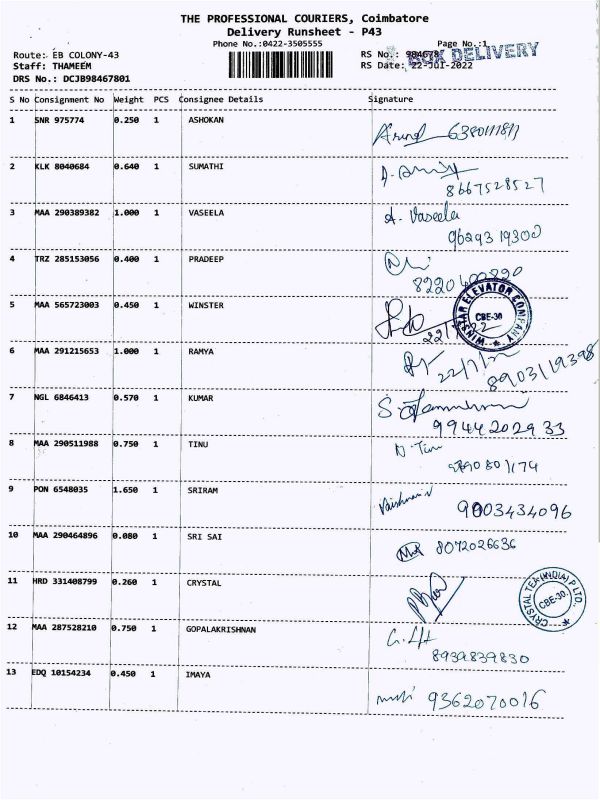 THE PROFESSIONAL COURIERS, Coimbatore
Delivery Runsheet - P43
Phone No.:0422-3505555
Page No.:1
Route: EB COLONY-43
RS No.: 984678
BOX DELIVERY
Staff: THAMEEM
RS Date: 22-Jul-2022
DRS No.: DCJB98467801
S No Consignment No Weight PCS Consignee Details Signature
1 SNR 975774 0.250 1 ASHOKAN
6380111811
2 KLK 8040684 0.640 1 SUMATHI
8667528527
3 MAA 290389382 1.000 1 VASEELA A. Vaseela
9629319300
4 TRZ 285153056 0.400 1 PRADEEP
5 MAA 565723003 0.450 1 WINSTER
WINSTAR ELEVATOR COMPANY
CBE-30
6 MAA 291215653 1.000 1 RAMYA
22/7/22
8903119398
7 NGL 6846413 0.570 1 KUMAR
9944202933
8 MAA 290511988 0.750 1 TINU N. Tinu
9 PON 6548035 1.650 1 SRIRAM
9003434096
10 MAA 290464896 0.080 1 SRI SAI
8072026636
11 HRD 331408799 0.260 1 CRYSTAL
CRYSTAL TEX (INDIA) P LTD.
CBE-30.
12 MAA 287528210 0.750 1 GOPALAKRISHNAN
8939839830
13 EDQ 10154234 0.450 1 IMAYA
9362070016